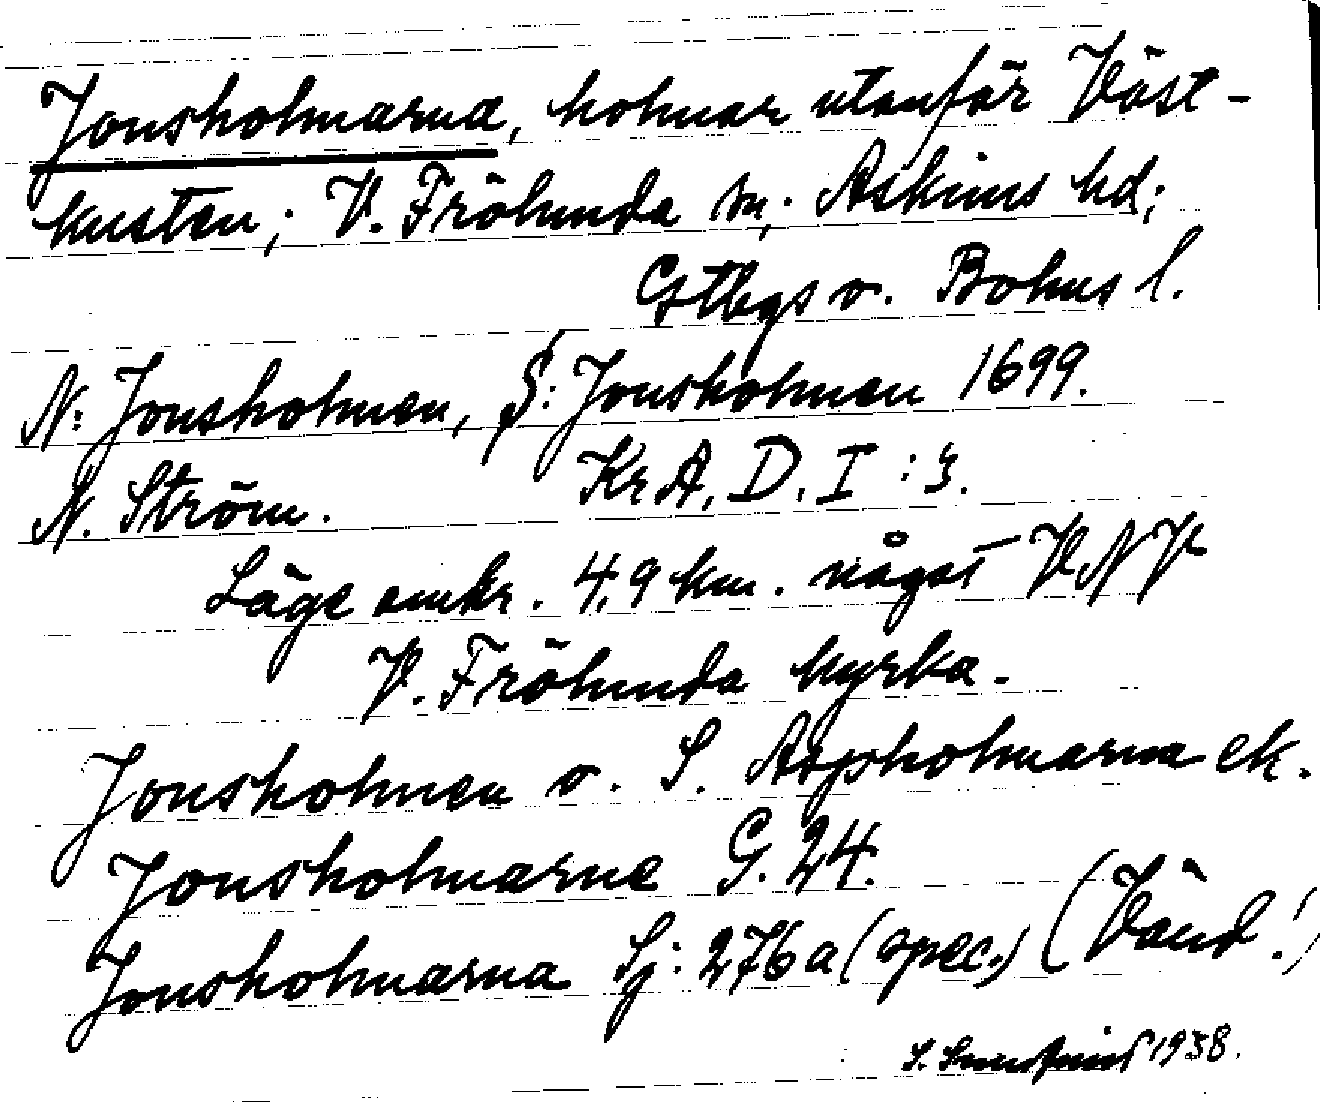 Jonsholmarna, holmar utanför Väst-
kusten; V. Frölunda sn; Askims hd;
Gtbgs o. Bohus l.
N: Jonsholmen, S: Jonsholmen 1699.
N. Ström. KrA, D. I : 3.
Läge omkr. 4,9 km. något VNV
V. Frölunda kyrka.
Jonsholmen o. S. Aspholmarna ek.
Jonsholmarne G. 24.
Jonsholmarna Sj: 276a (spec.) (Vänd!)
S. 1938.